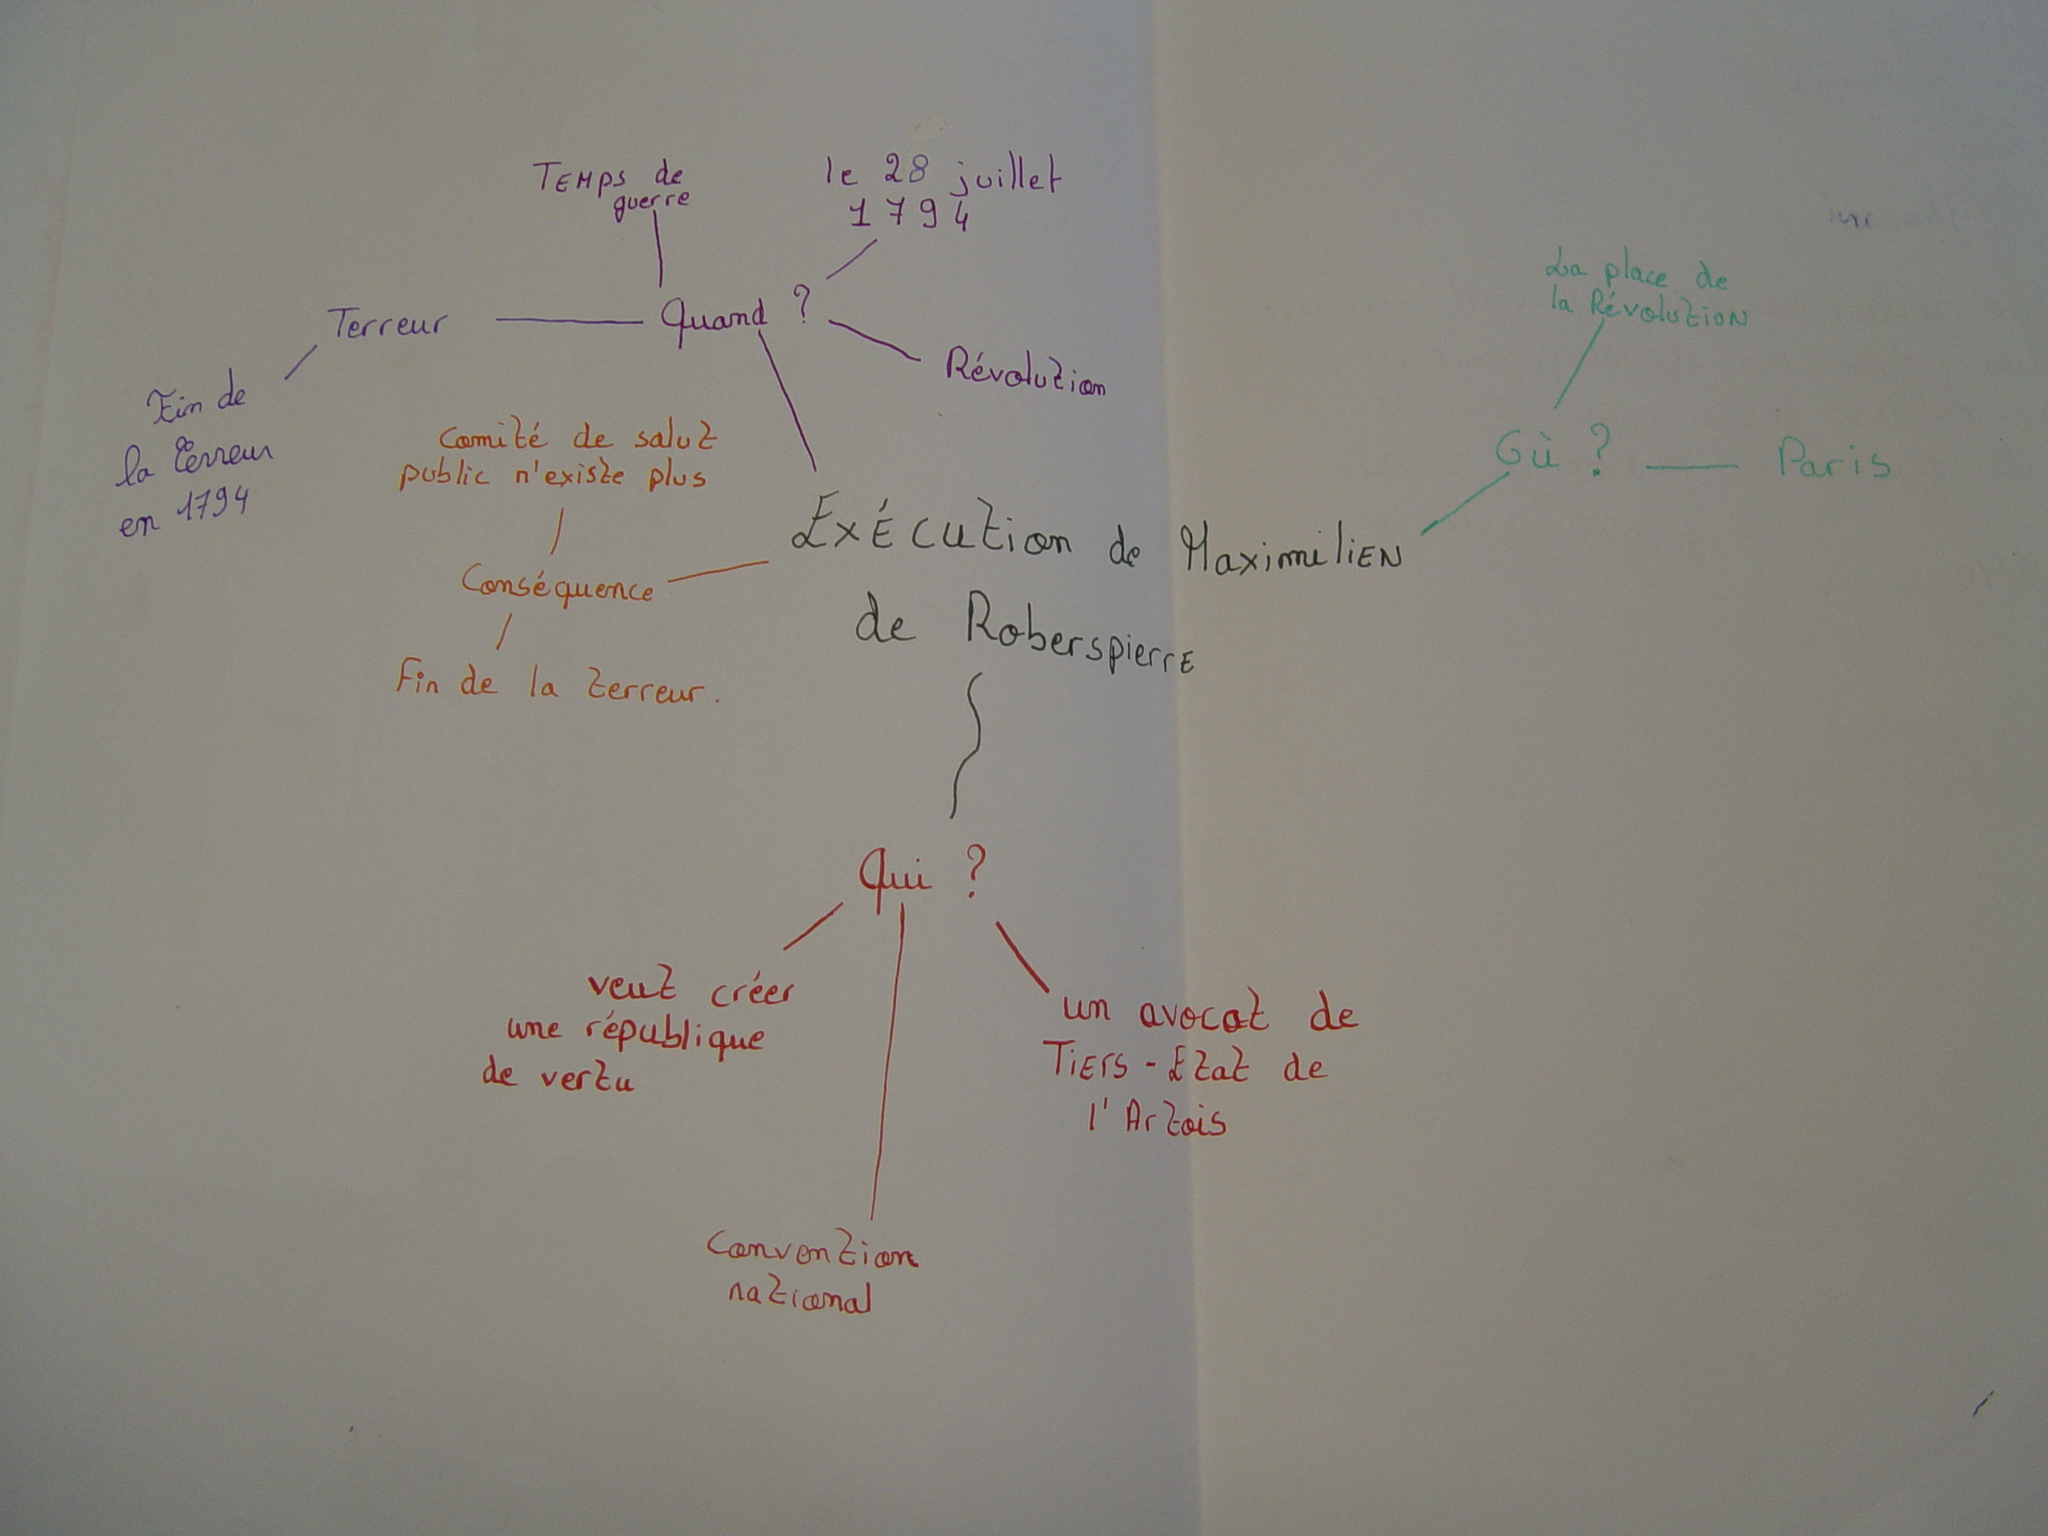 Temps de
guerre
le 28 juillet
1794
Quand ?
Terreur
Révolution
Fin de
la terreur
en 1794
La place de
la Révolution
Où ?
Paris
Comité de salut
public n'existe plus
Conséquence
Fin de la terreur.
Exécution de Maximilien
de Roberspierre
Qui ?
veut créer
une république
de vertu
un avocat de
Tiers-Etat de
l'Artois
Convention
national